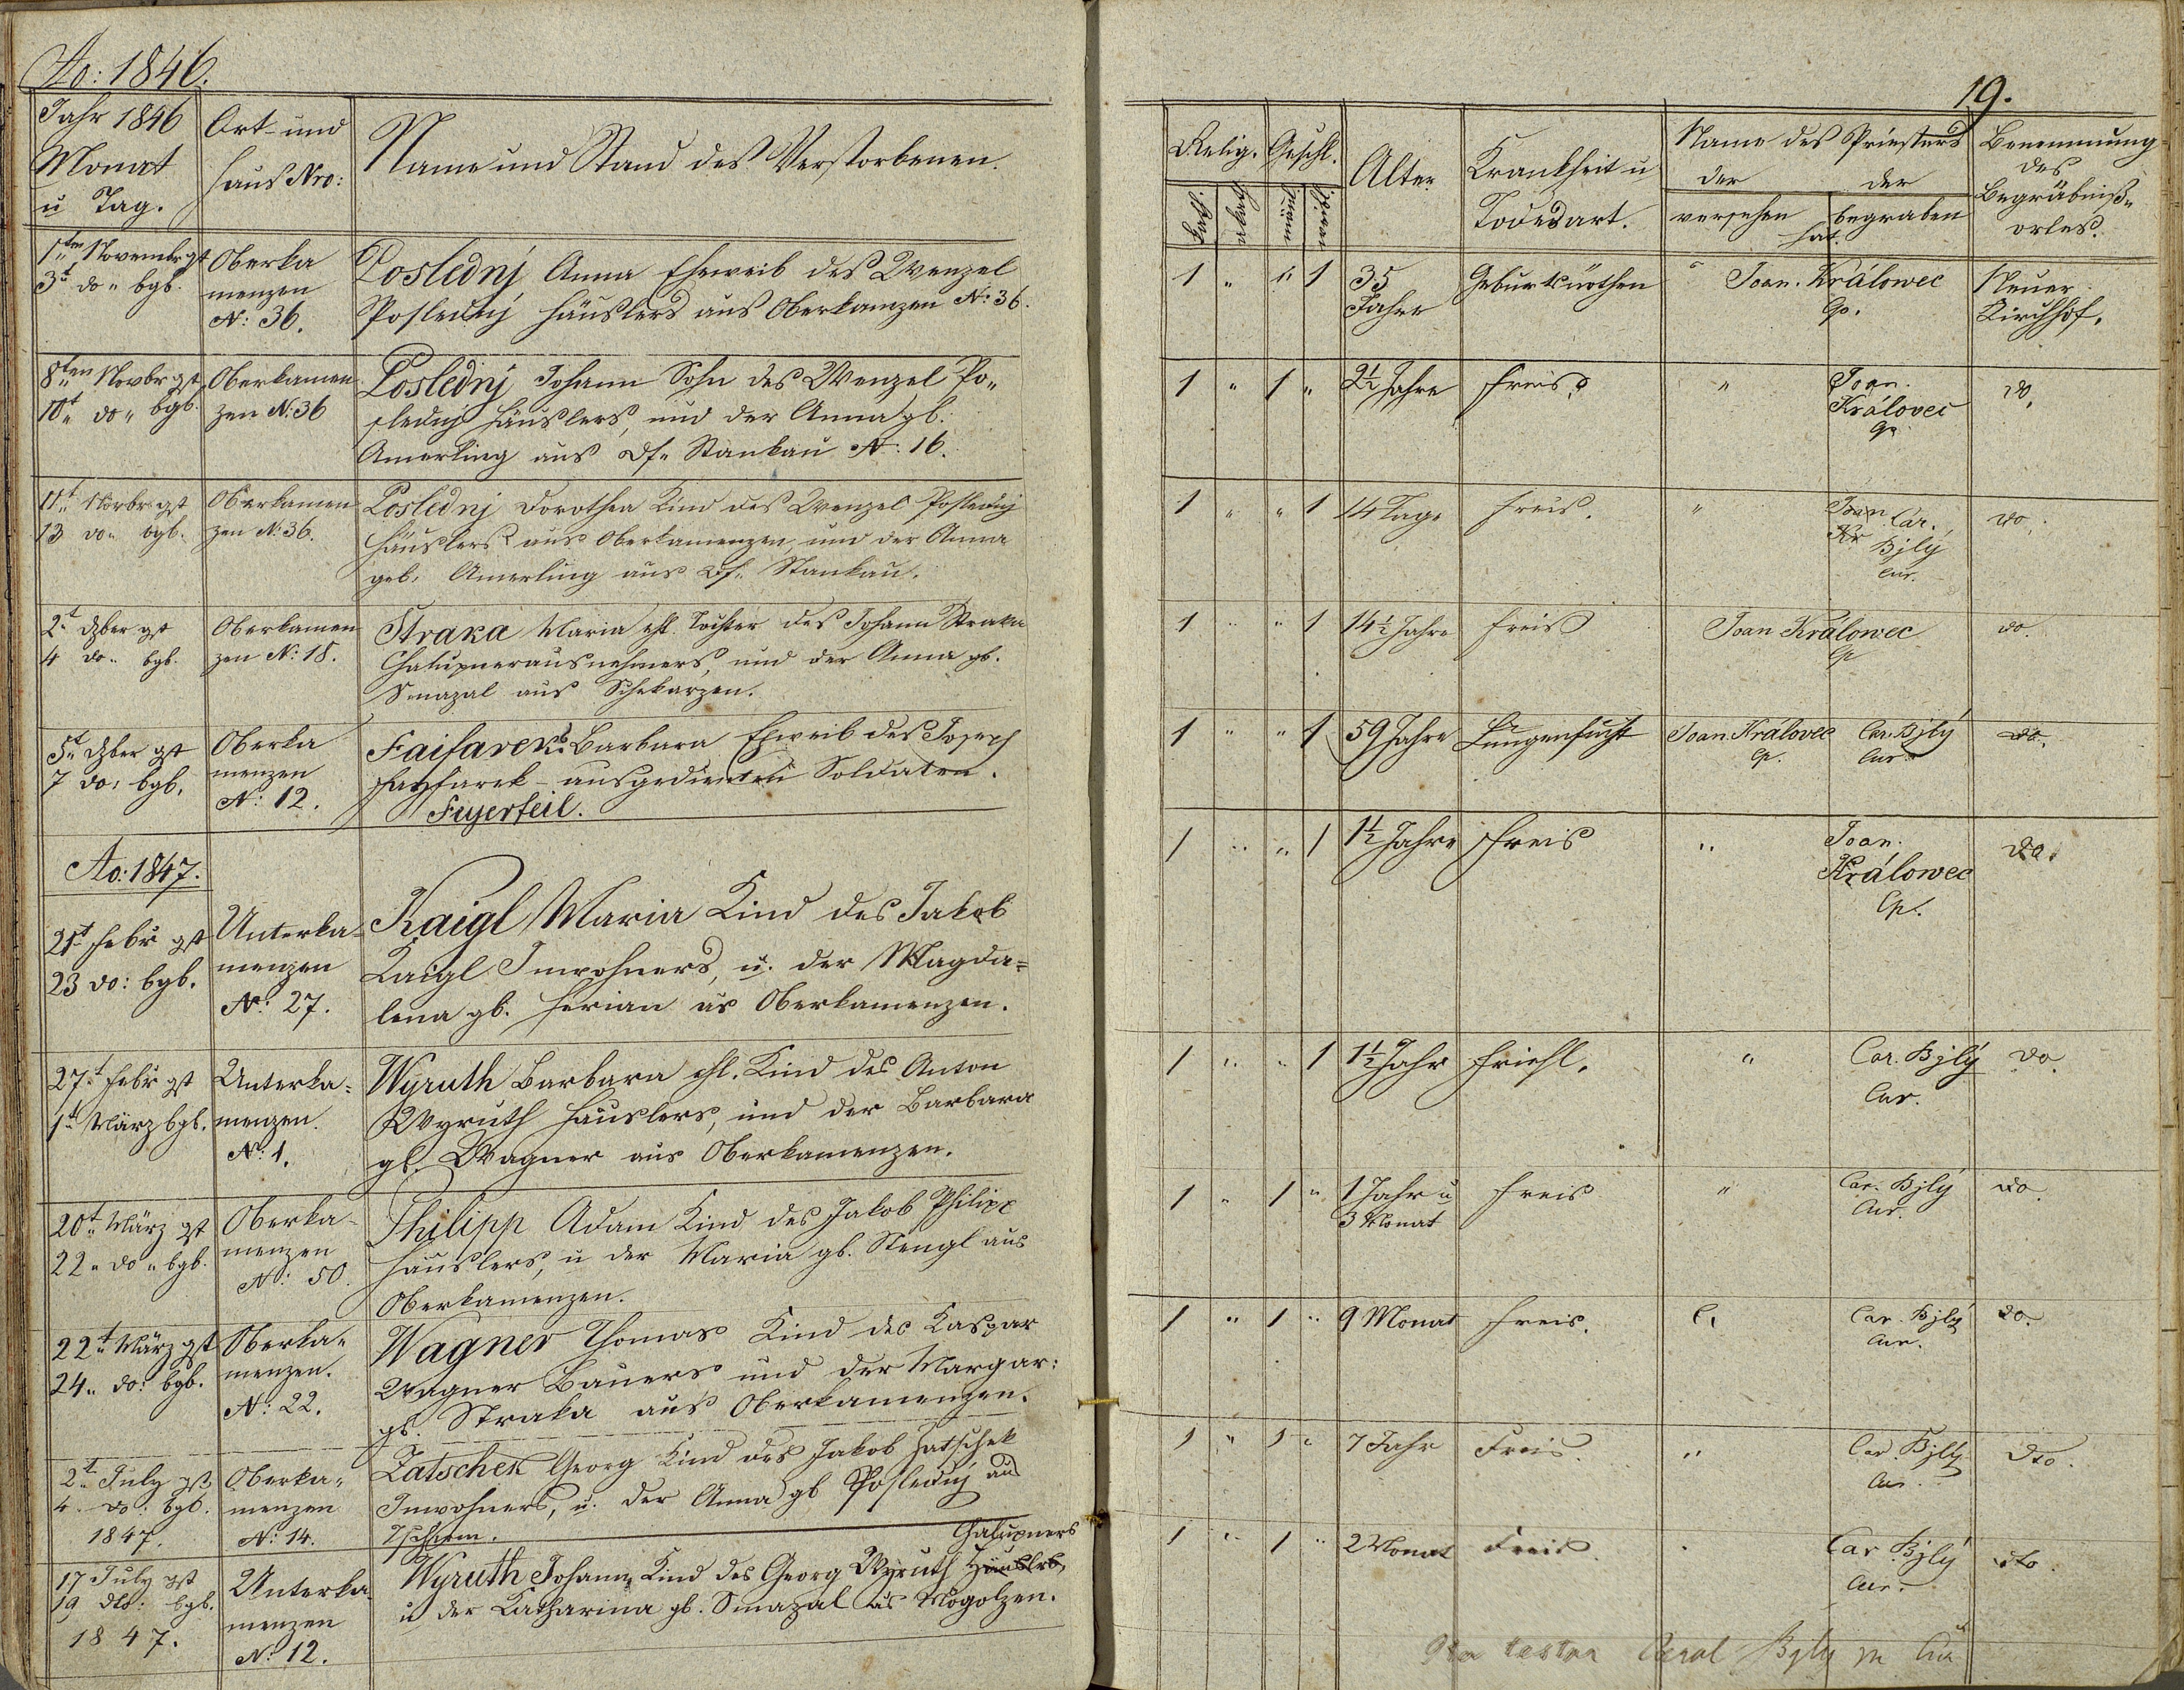 Ao: 1846.
Jahr 1846
Monat
u Tag.
Ort- und
Haus Nro:
Name und Stand des Verstorbenen.
1ten Novembr gst
3t do " bgb.
Oberka
menzen
N: 36.
Poslednj Anna Eheweib des Wenzel
Poslednj Häuslers aus Oberkamzen N: 36.
8ten Novbr gst
10t do " bgb.
Oberkamen
zen N: 36
Poslednj Johann Sohn des Wenzel Po„
slednj Häuslers, und der Anna gb.
Amerling aus Df. Stankau N: 16.
11t Novbr gst
13 do " bgb.
Oberkamen
zen N: 36.
Poslednj Dorothea Kind des Wenzel Poslednj
Häuslers aus Oberkamenzen, und der Anna
geb. Amerling aus Df. Stankau.
2t Dzber gst
4 do " bgb.
Oberkamen
zen N: 18.
Straka Maria ehl. Tochter des Johann Straka
Chalupnerausnehmers, und der Anna gb.
Smazal aus Schekarzen.
5t Dzber gst
7 do: bgb.
Oberka
menzen
N: 12.
Barbara Eheweib des Joseph
ausgedienten Soldaten.
Feyerfeil.
Ao: 1847.
21t Febr gst
23 do: bgb.
Unterka-
menzen
N: 27.
Kaigl Maria Kind des Jakob
Kaigl Inwohners, u. der Magda=
lena gb. Ferian as Oberkamenzen.
27t Febr gst
1t März bgb.
Unterka=
menzen.
N: 1.
Wyruth Barbara ehl. Kind des Anton
Wyruth Häuslers, und der Barbara
gb. Wagner aus Oberkamenzen.
20t März gst
22 " do " bgb.
Oberka-
menzen
N: 50.
Philipp Adam Kind des Jakob Philipp
Häuslers, u der Maria gb. Stengl aus
Oberkamenzen.
22t März gst
24 " do: bgb.
Oberka„
menzen.
N: 22.
Wagner Thomas Kind des Kaspar
Wagner Bauers und der Margar:
gb. Straka aus Oberkamenzen.
2t July gst
4 do: bgb.
1847.
Oberka„
menzen
N: 14.
Zatschek Georg Kind des Jakob Zatschek
Inwohners, u. der Anna gb Poslednj aus
Chalupners
17 July gst
19 dto: bgb.
1847.
Unterka-
menzen
N: 12.
Wyruth Johann, Kind des Georg Wyruth Häuslrs,
u der Katharina gb. Smazal as Mogolzen.
19.
Relig.
Geschl.
Alter
Krankheit u
Todesart.
Name des Priesters
der
der
versehen
begraben
hat.
Benennung
des
Begräbniß„
ortes.
1 " " 1
35
Jahre
Geburtsnöthen
Joan. Králowec
Cp.
Neuer
Kirchhof.
1 " 1 "
2½ Jahre
Freis
"
Joan.
Královec
Cp
do.
1 " " 1
14 Tage
Freis.
"
Joan
Kr
Car.
Bjlý
Cur.
do.
1 " " 1
14½ Jahre
Freis
Joan Králowec
Cp
do.
1 " " 1
59 Jahre
Lungensucht
Joan Královec
Cp.
Car. Bjlý
Cur.
do.
1 " " 1
1½ Jahre
Freis
"
Joan.
Králowec
Cp.
do.
1 " " 1
1½ Jahr
"
Car. Bjlý
Cur.
do.
1 " 1 "
1 Jahr u
3 Monat
Freis
"
Car. Bjlý
Cur.
do.
1 " 1 "
9 Monat
Freis.
"
Car. Bjlý
Cur.
do.
1 " 1 "
7 Jahr
Freis.
"
Car Bjlý
Cur.
dto.
1 " 1 "
2 Monat
Freis.
Car Bjlý
Cur.
dto.
Carol Bjlý